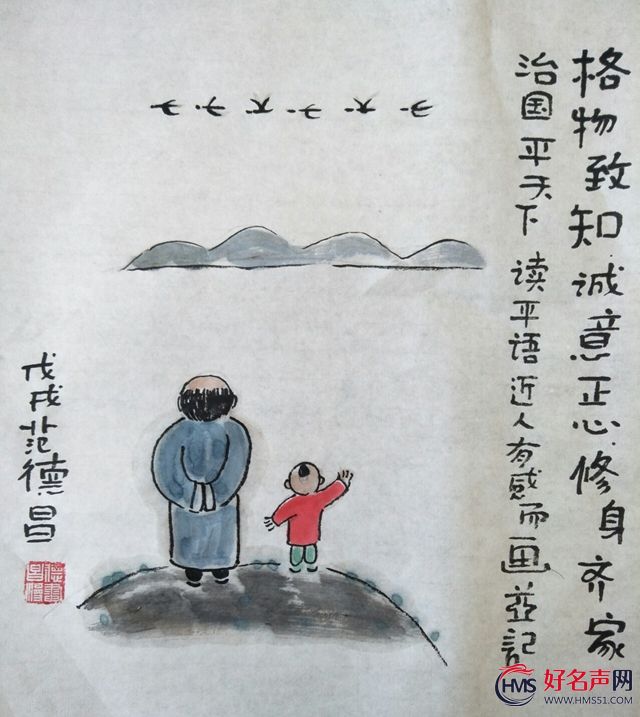 格物致知.诚意正心.修身齐家
治国平天下 读平语近人有感而画並記
戊戌范德昌
HMS 好名声网
WWW.HMS51.COM